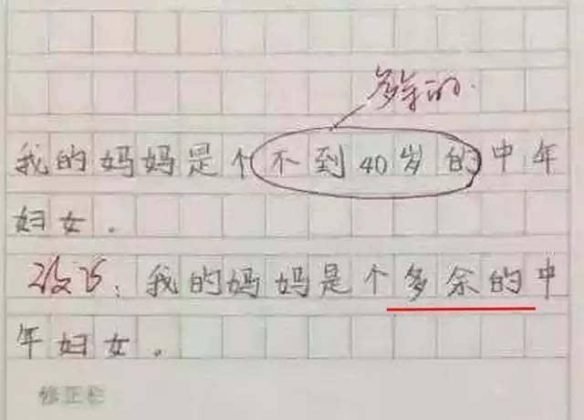 多余的.
我的妈妈是个不到40岁的中年
妇女.
改巧:我的妈妈是个多余的中
年妇女。
修正栏